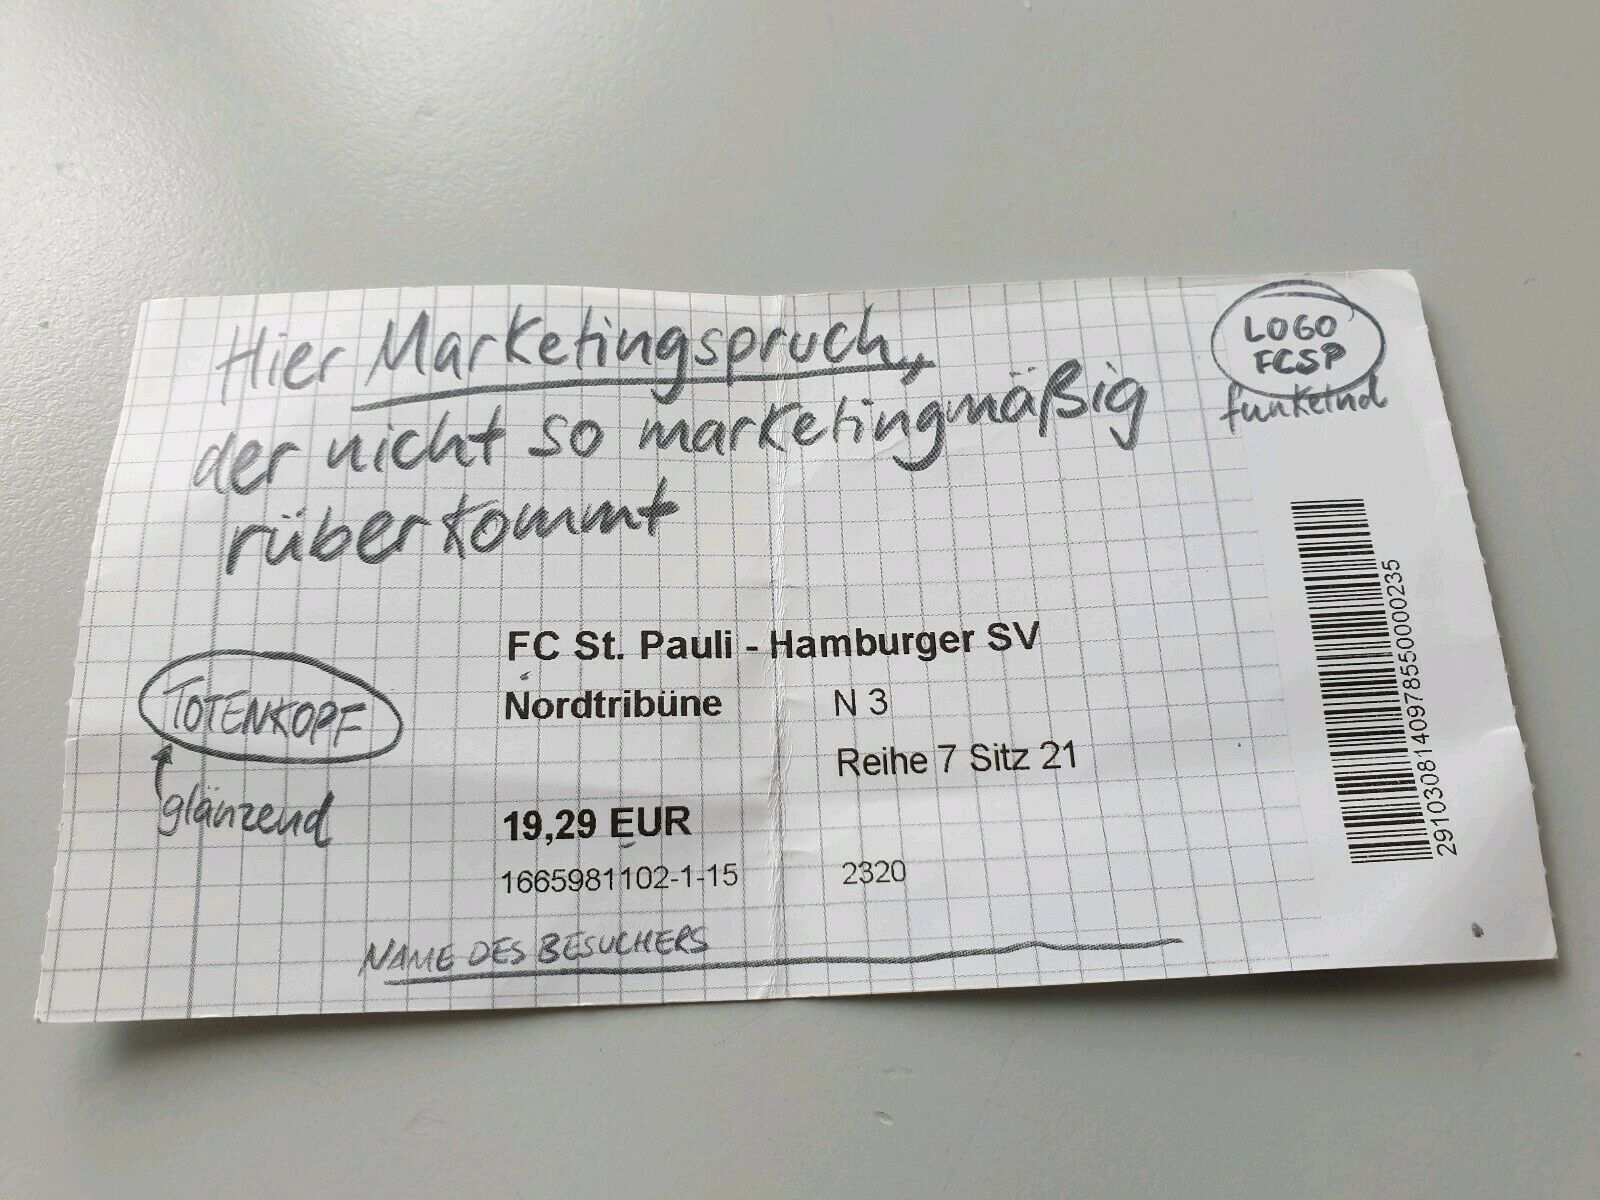 Hier Marketingspruch,
der nicht so marketingmäßig
rüberkommt
LOGO
FCSP
funkelnd
FC St. Pauli - Hamburger SV
Nordtribüne N 3
Reihe 7 Sitz 21
TOTENKOPF
glänzend
19,29 EUR
1665981102-1-15 2320
NAME DES BESUCHERS
291030814097855000235